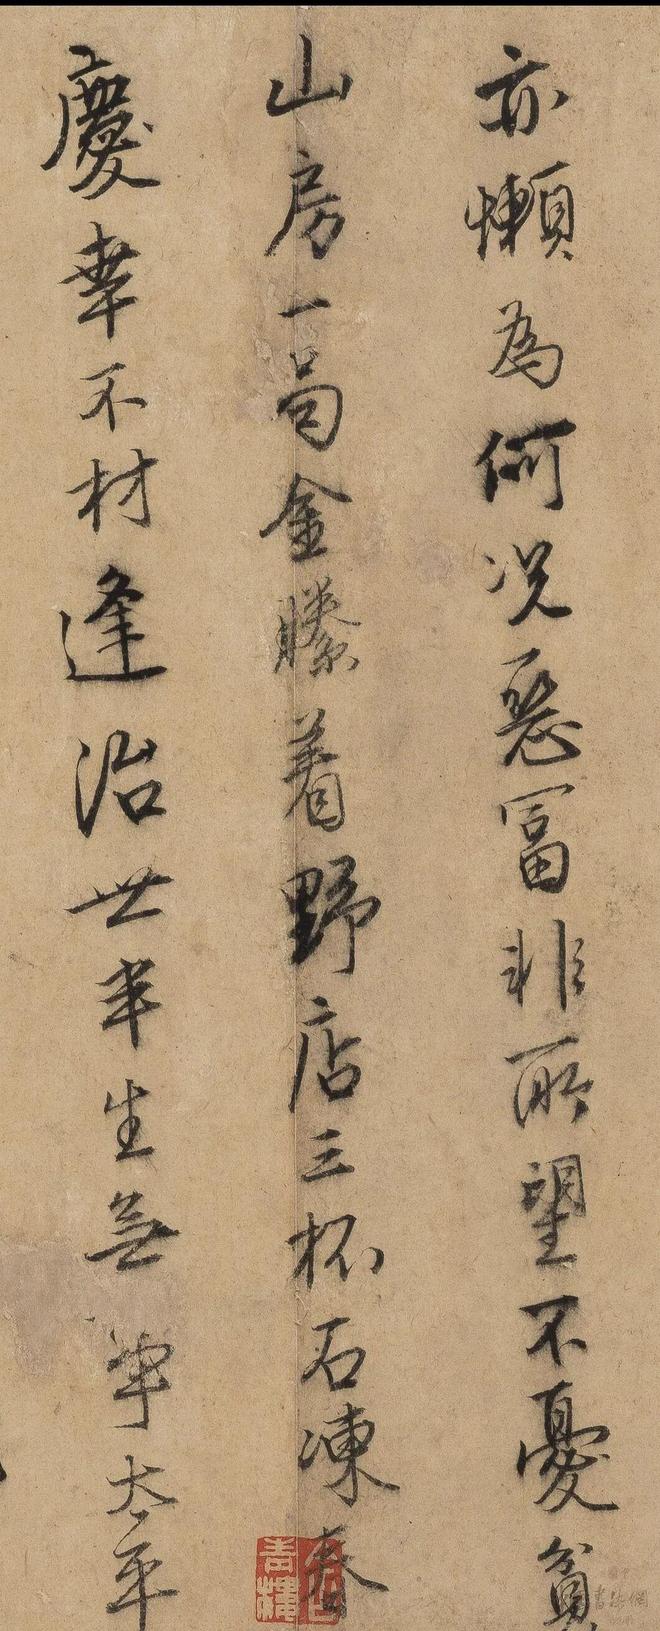 亦懶為何況惡富非所望不憂貧
山房一局金縢着野店三杯石凍春
慶幸不材逢治世半生無事太平